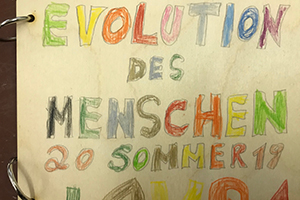 EVOLUTION
DES
MENSCHEN
20 SOMMER 19